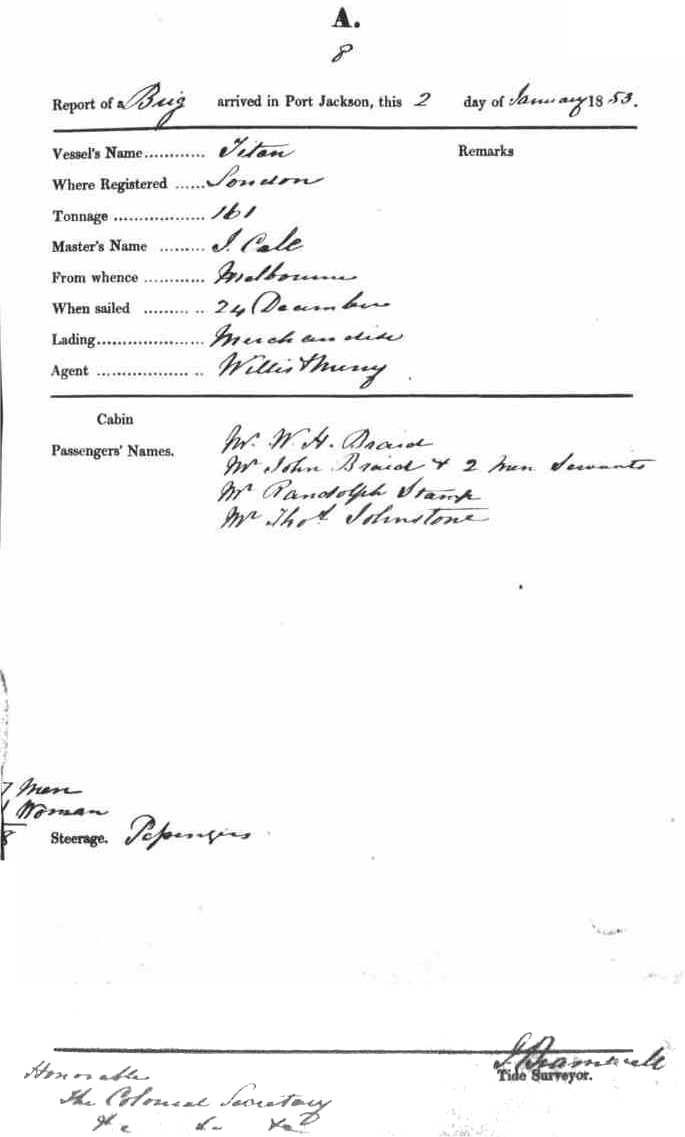 A.
8
Report of a Brig arrived in Port Jackson, this 2 day of January 1853.
Vessel's Name............ Titan Remarks
Where Registered ...... London
Tonnage .................. 161
Master's Name ......... J. Cale
From whence ............ Melbourne
When sailed ......... .. 24 December
Lading..................... Merchandise
Agent .................. .. Willis & Merry
Cabin
Passengers' Names. Mr. W. H. Braid
Mr John Braid & 2 Men Servants
Mr Randolph Stamp
Mr Thos. Johnstone
7 Men
1 Woman
8 Steerage. Passengers
J. Bramwell
Tide Surveyor.
Honorable
The Colonial Secretary
&c &c &c